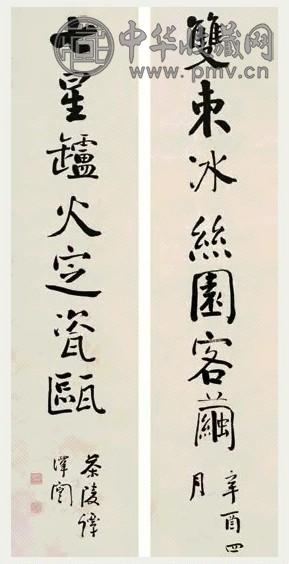 中华收藏网
www.pmv.cn
雙束冰絲園客繭
辛酉四
月
七星罏火定瓷甌
茶陵譚
澤闓